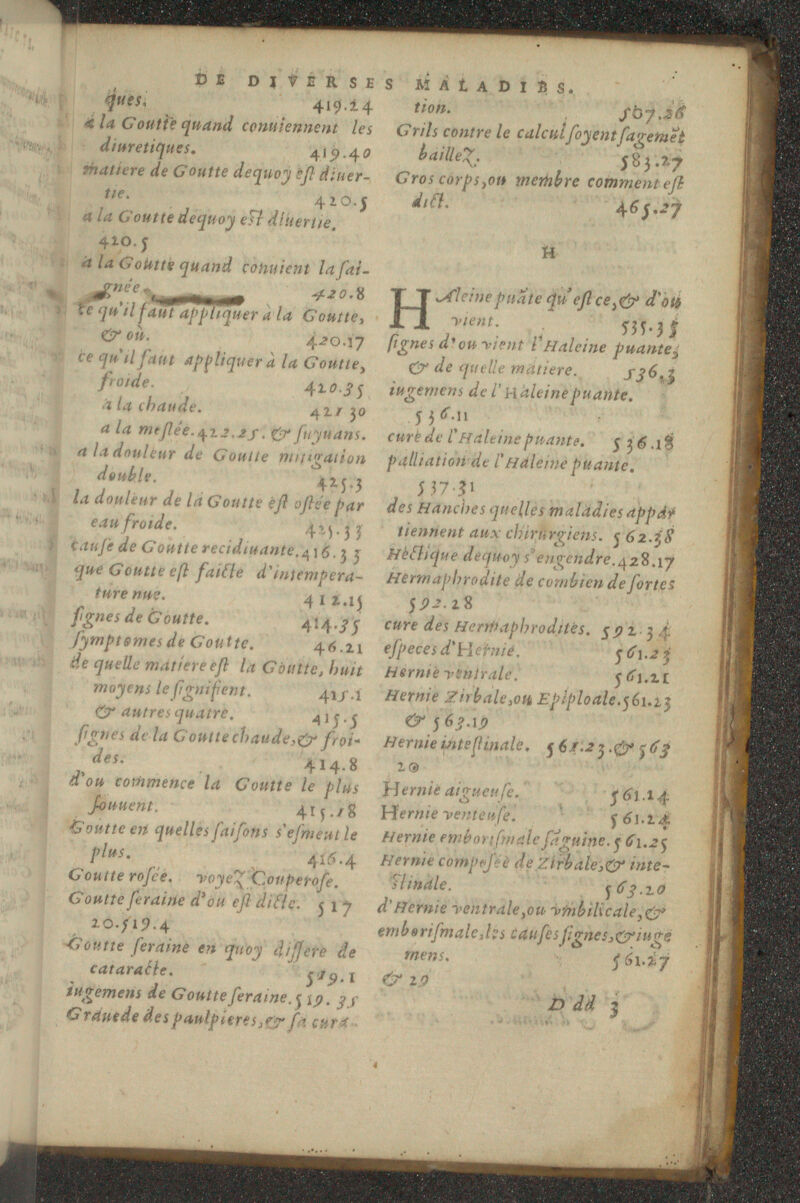 DE DIVERSES MALADIES.
ques. 419.14
a la Goutte quand conuiennent les
diuretiques. 419.40
matiere de Goutte dequoy est diuer-
tie. 420.5
a la Goutte dequoy est diuertie.
420.5
a la Goutte quand conuient la sai-
gnée. 420.8
ce qu'il faut appliquer a la Goutte,
& où. 420.17
ce qu'il faut appliquer à la Goutte,
froide. 420.35
a la chaude. 421 30
a la meslée. 422.25. & suyuans.
a la douleur de Goutte mitigation
double. 425.3
la douleur de la Goutte est ostée par
eau froide. 425.33
cause de Goutte recidiuante. 416.35
que Goutte est faicte d'intempera-
ture nue. 412.15
signes de Goutte. 414.35
symptomes de Goutte. 46.21
de quelle matiere est la Goutte, huit
moyens le signifient. 415.1
& autres quatre. 415.5
signes de la Goutte chaude, & froi-
des. 414.8
d'ou commence la Goutte le plus
souuent. 415.18
Goutte en quelles saisons s'esmeut le
plus. 416.4
Goutte rosée. voyez Couperose.
Goutte seraine d'ou est dicte. 517
20.519.4
Goutte seraine en quoy differe de
cataracte. 519.1
iugemens de Goutte seraine. 519. 35
Graue de des paulpieres, & sa cura-
tion. 567.26
Grils contre le calcul soyent sagemẽt
baillez. 583.27
Gros corps, ou membre comment est
dict. 465.27
H
HAleine puãte qu'est ce, & d'où
vient. 535.35
signes d'ou vient l'Haleine puante,
& de quelle matiere. 536.3
iugemens de l'Haleine puante.
536.11
cure de l'Haleine puante. 536.18
palliation de l'Haleine puante.
537.31
des Hanches quelles maladies appar
tiennent aux chirurgiens. 562.38
Hectique dequoy s'engendre. 428.17
Hermaphrodite de combien de sortes
592.28
cure des Hermaphrodites. 592.34
especes d'Hernie. 561.23
Hernie ventrale. 561.21
Hernie Zirbale, ou Epiploale. 561.23
& 563.19
Hernie intestinale. 561.23. & 563
20
Hernie aigueuse. 561.24
Hernie venteuse. 561.24
Hernie emborismale sãguine. 561.25
Hernie composée de Zirbale, & inte-
stinale. 563.20
d'Hernie ventrale, ou vmbilicale, &
emborismale, les causes signes, & iuge
mens. 561.27
& 29
Ddd 3